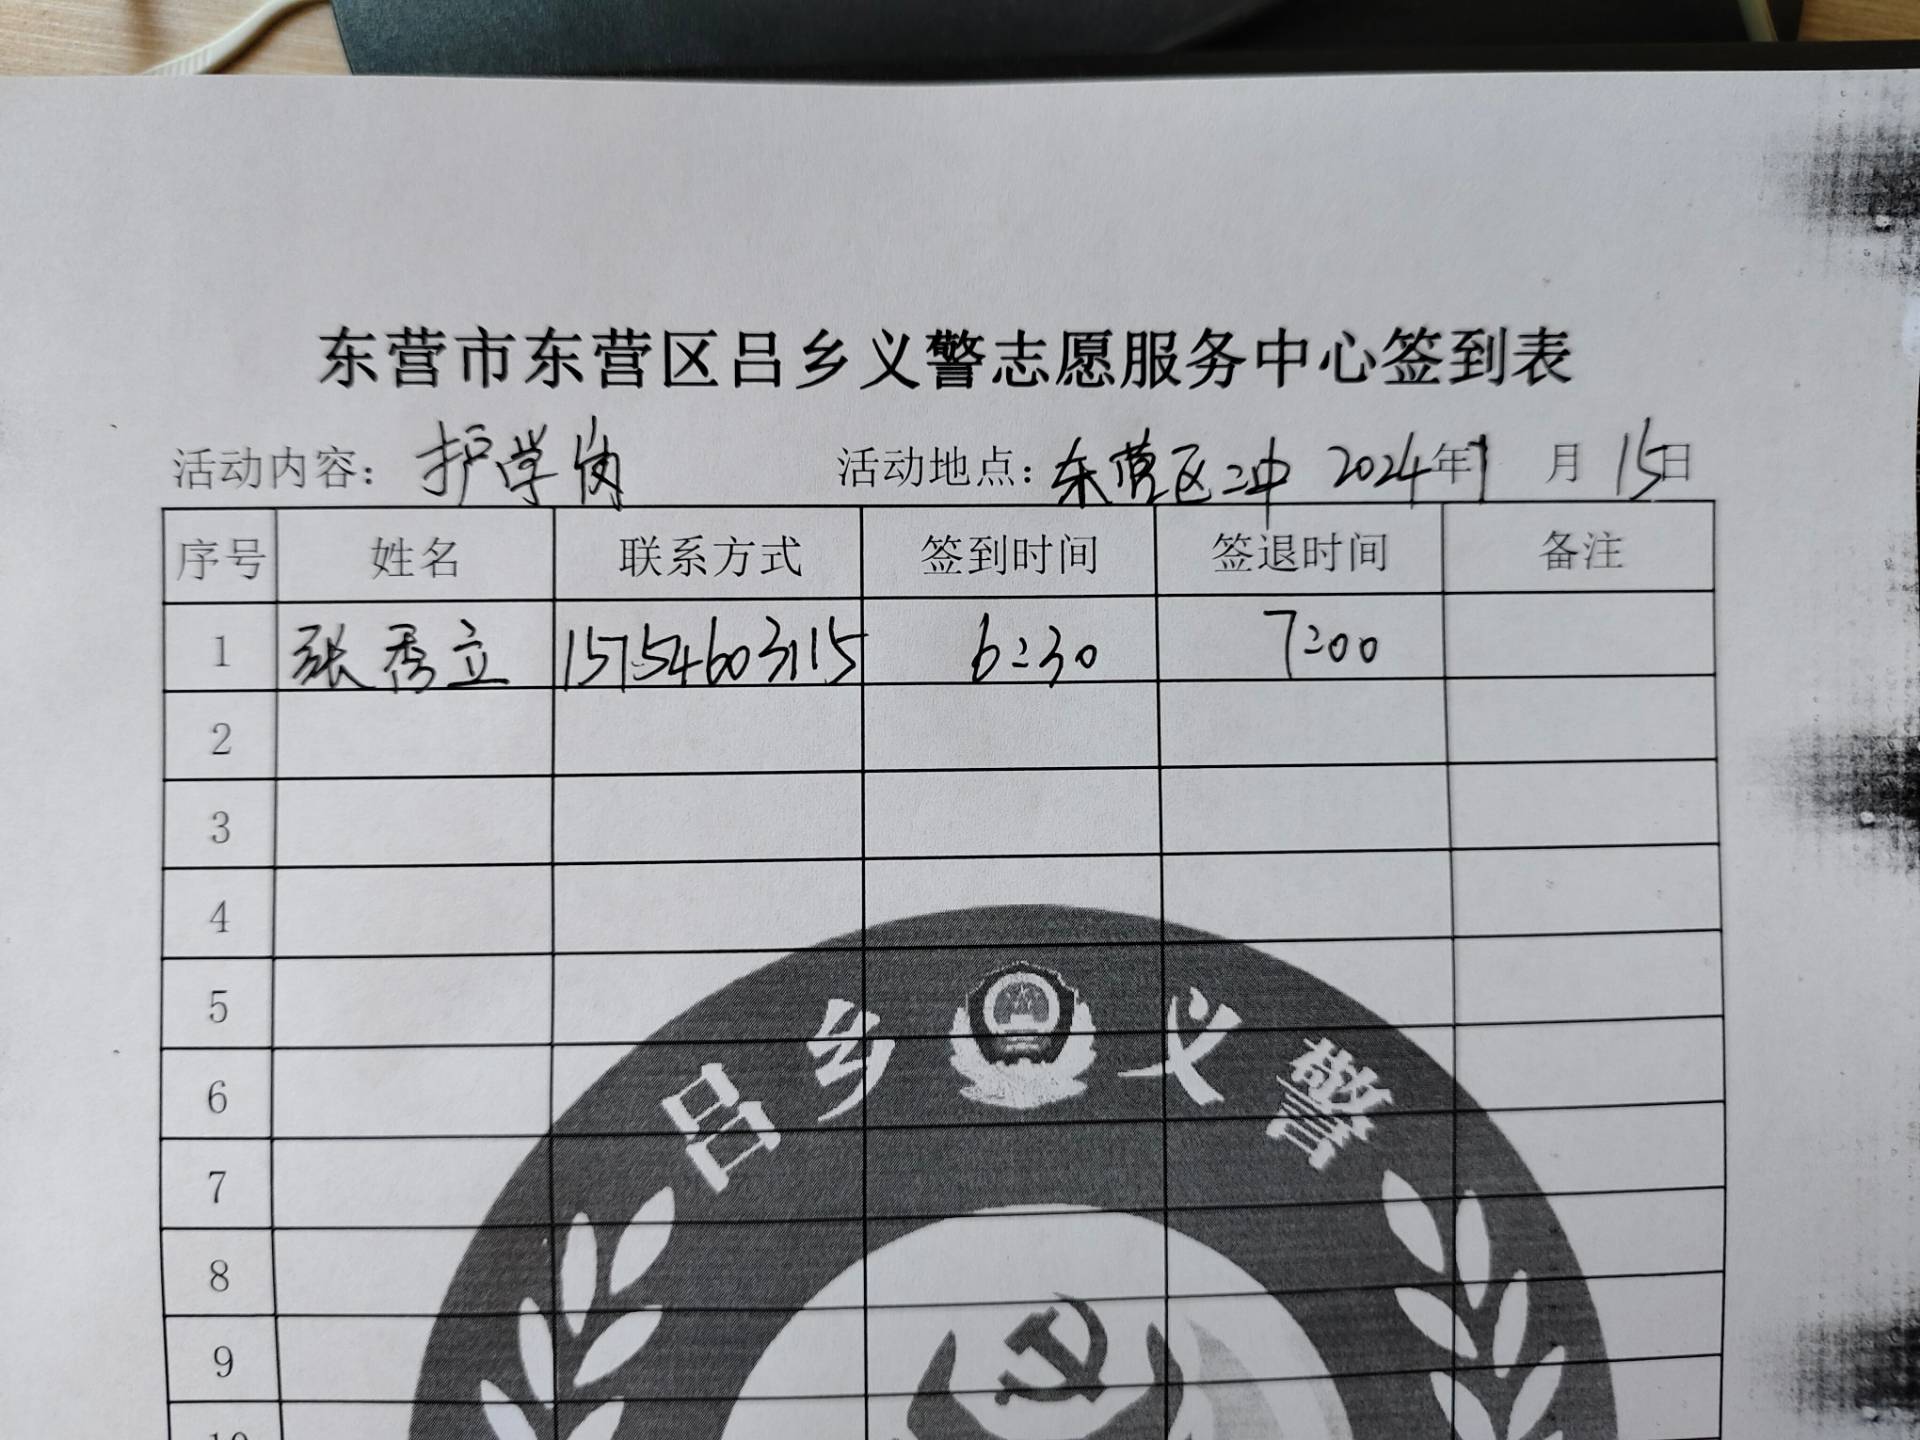 东营市东营区吕乡义警志愿服务中心签到表
活动内容：护学岗 活动地点：东营区二中 2024年1月15日
序号 姓名 联系方式 签到时间 签退时间 备注
1 张秀立 15754603115 6:30 7:00
2
3
4
5
6
7
8
9
10
吕乡义警